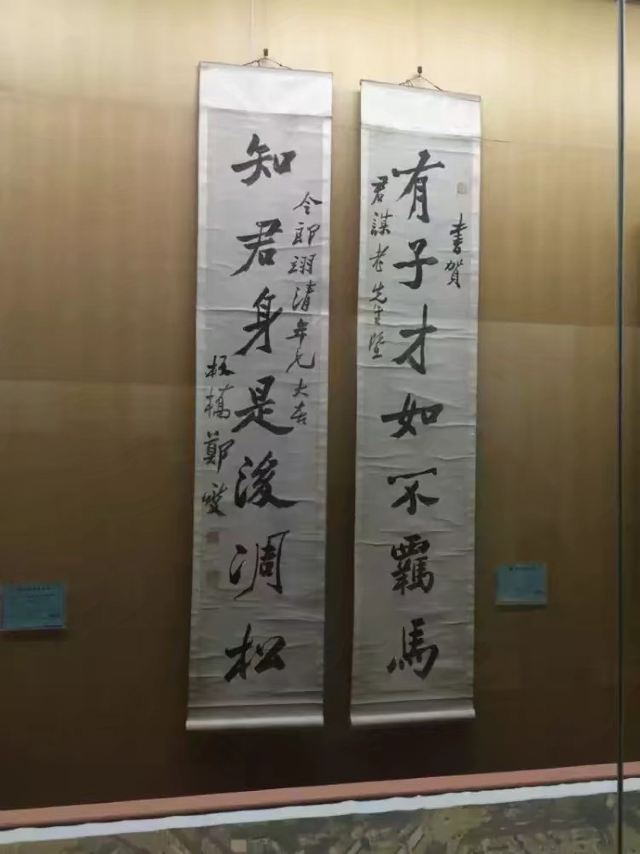 書賀
有子才如不羈馬
君謀老先生暨
令郎翊清年兄大喜
知君身是後凋松
板橋鄭燮